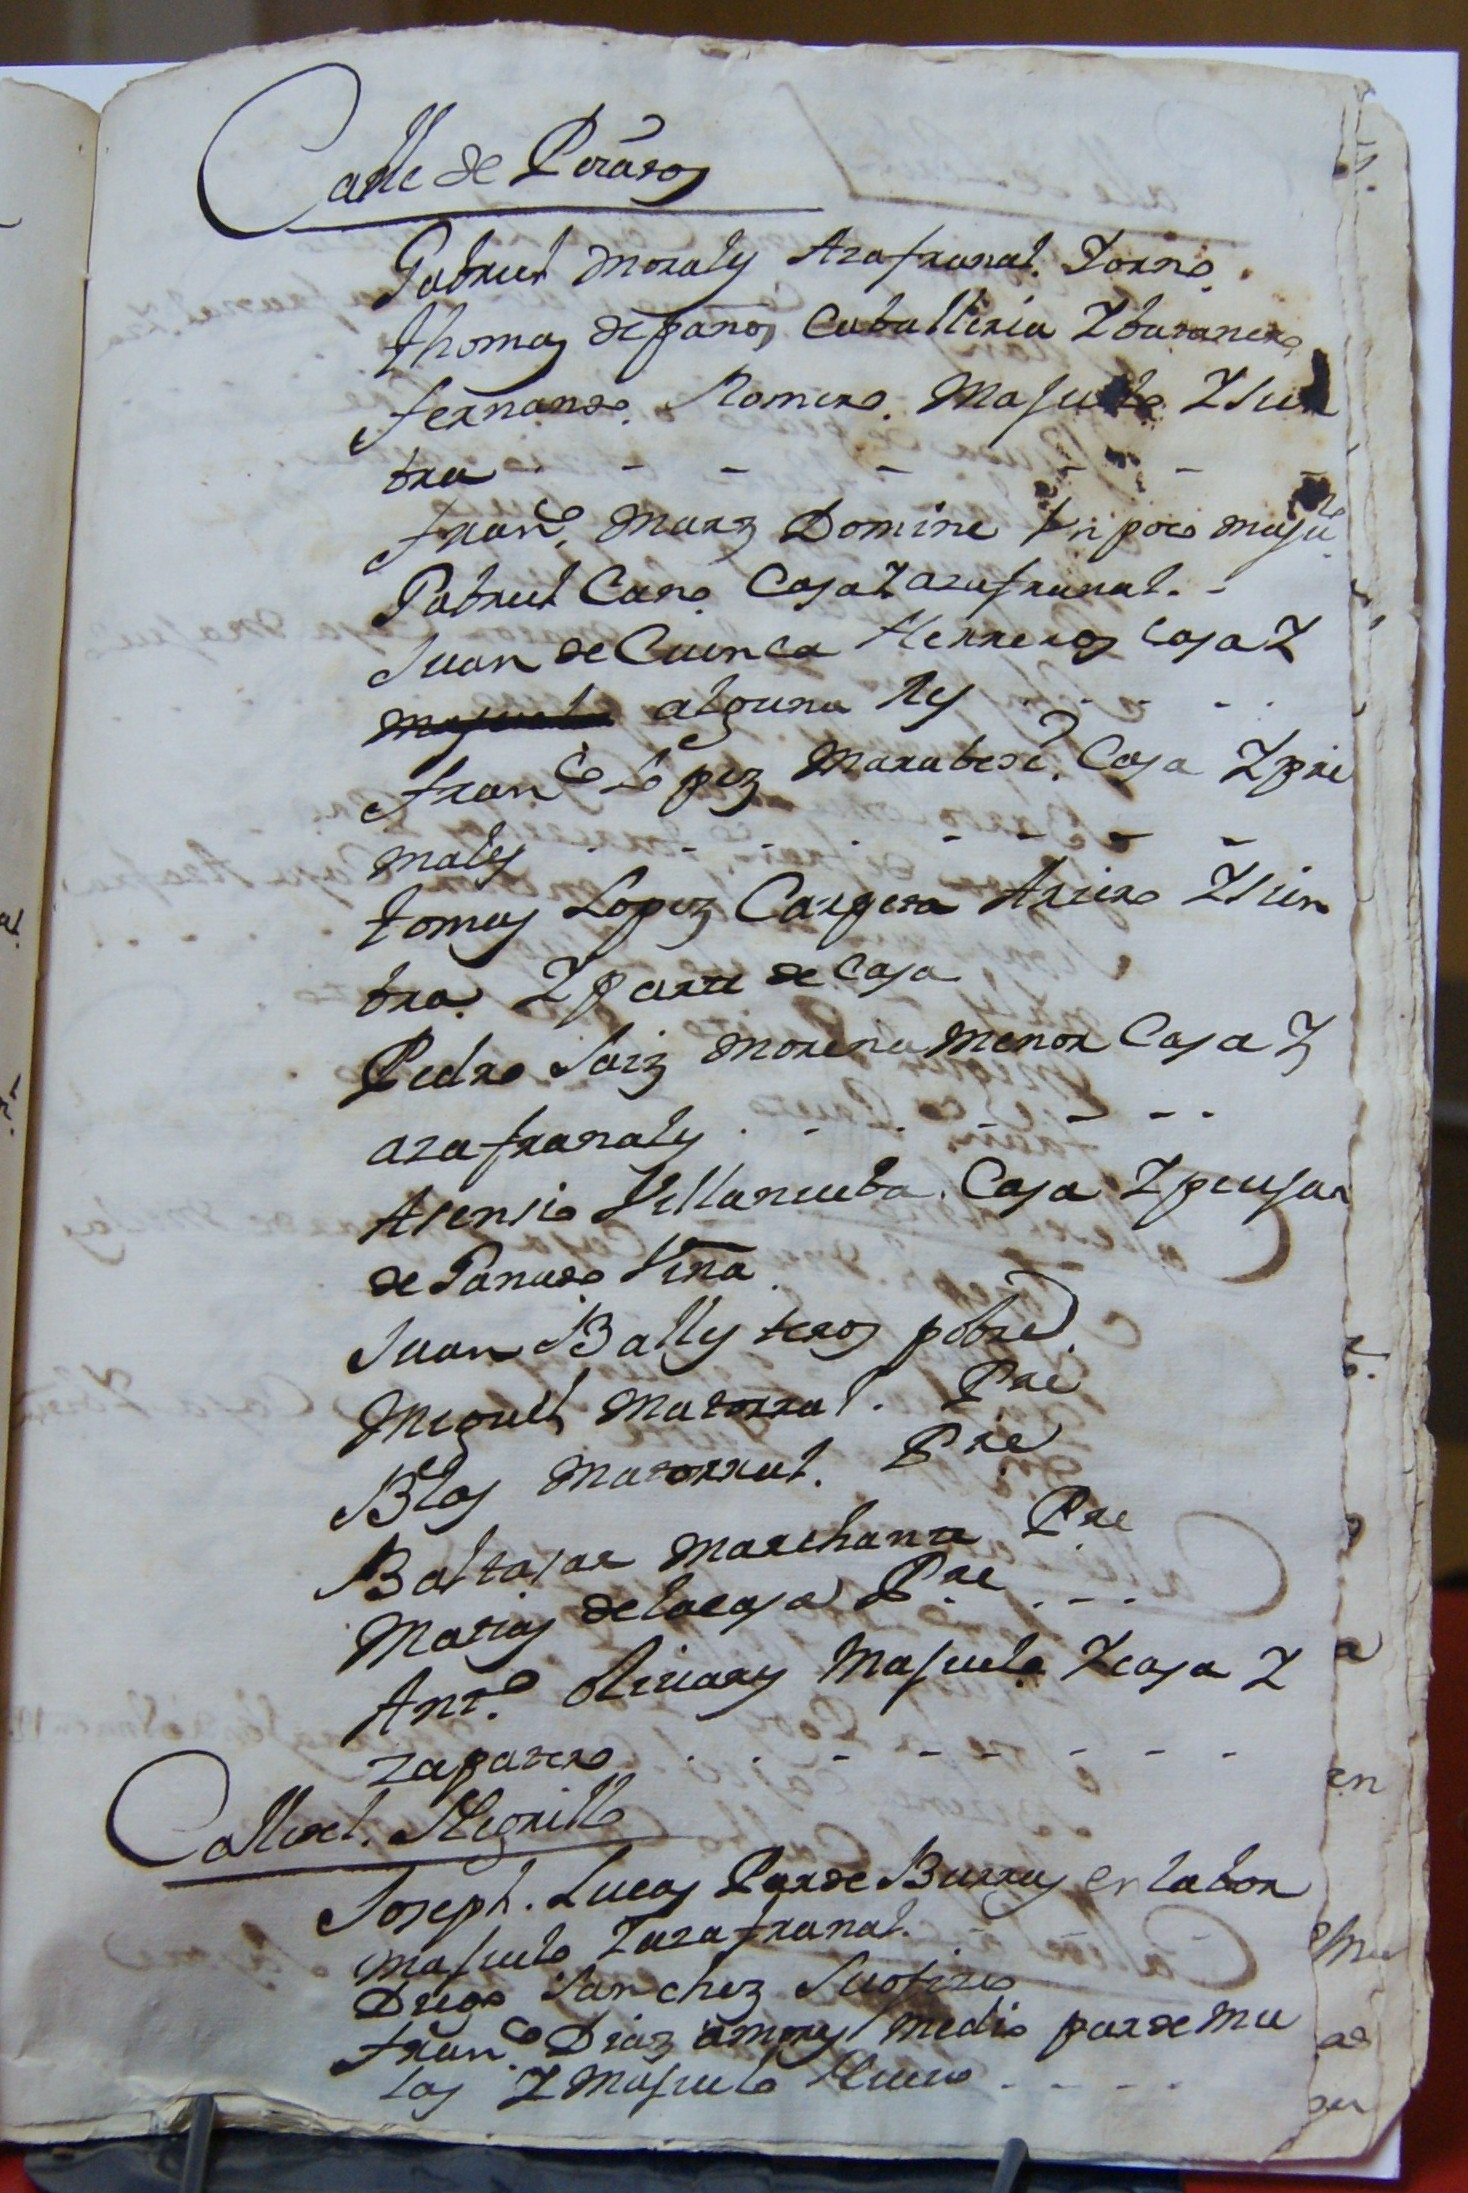 Calle de
Gabriel Morales Azafranal. Torno.
thomas de paños Caballeria Y
fernando. Romero. Majuelo Ysien
bra - - - - - - -
fran.co Marz Domine Un poco maju.lo
Gabriel Cano. Casa Y azafranal. -
Juan de Cuenca Herreros casa Y
majuelo alguna Res - - - -
fran.co Lopez Casa Y pe
males - - - - - - -
tomas Lopez Cargera Ariero Ysien
bra. Y parte de Casa
Pedro Saiz Morena menor Casa Y
azafranales - - - - - -
Asensio Villanueba. Casa Y pensar
de Ganado Viña.
Juan Ballesteros pobre.
Miguel Matorral. P.re
Blas Matorral. P.re
Baltasar Marchante P.re
Matias de la casa P.re - - -
Ant.o Olivares Majuelo Y casa Y
zapatero - - - - - - - -
Calle del.
Joseph. Lucas Par de Burras en labor
majuelo Y azafranal.
Diego Sanchez
fran.co Diaz medio par de mu
las Y Majuelo - - - -